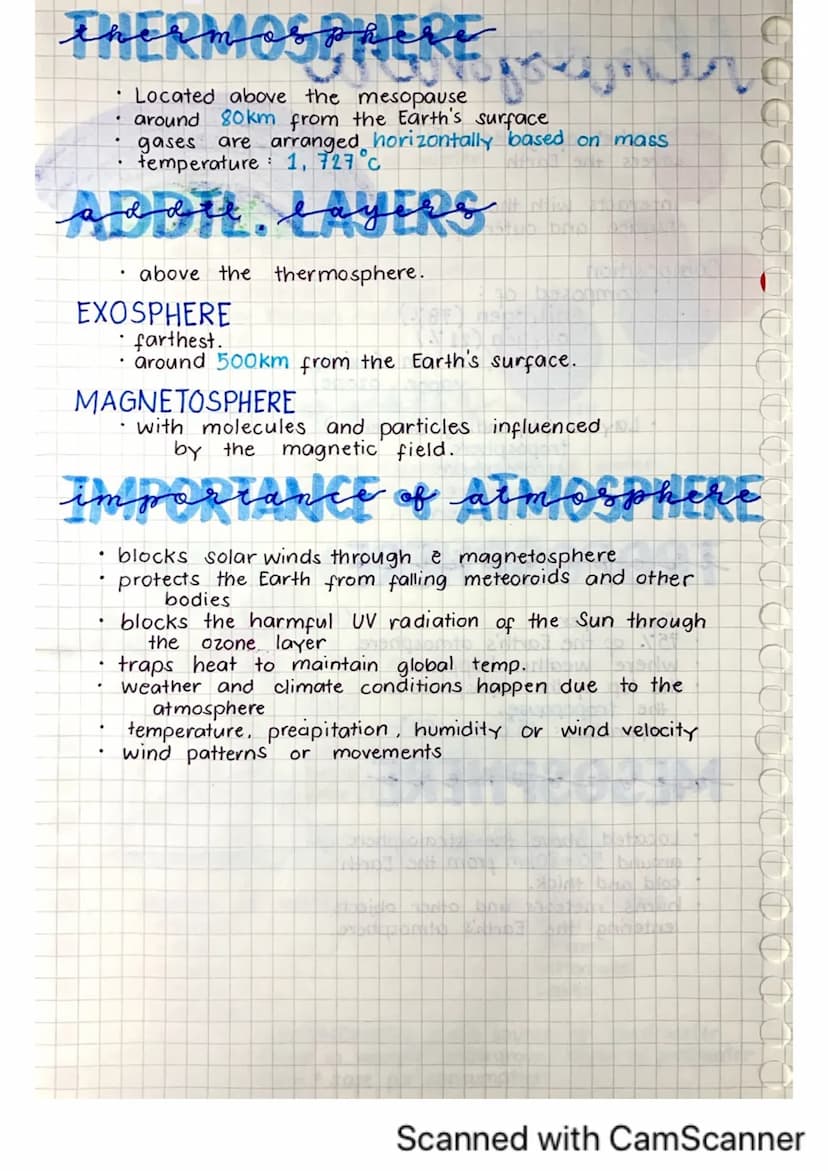 THERMOSPHERE
• Located above the mesopause
• around 80km from the Earth's surface
• gases are arranged horizontally based on mass
• temperature : 1, 727°c
ADDTL. LAYERS
• above the thermosphere.
EXOSPHERE
• farthest.
• around 500km from the Earth's surface.
MAGNETOSPHERE
• with molecules and particles influenced
by the magnetic field.
IMPORTANCE of ATMOSPHERE
• blocks solar winds through magnetosphere
• protects the Earth from falling meteoroids and other
bodies
• blocks the harmful UV radiation of the Sun through
the ozone layer
• traps heat to maintain global temp.
• weather and climate conditions happen due to the
atmosphere
• temperature, precipitation, humidity or wind velocity
• wind patterns or movements
Scanned with CamScanner